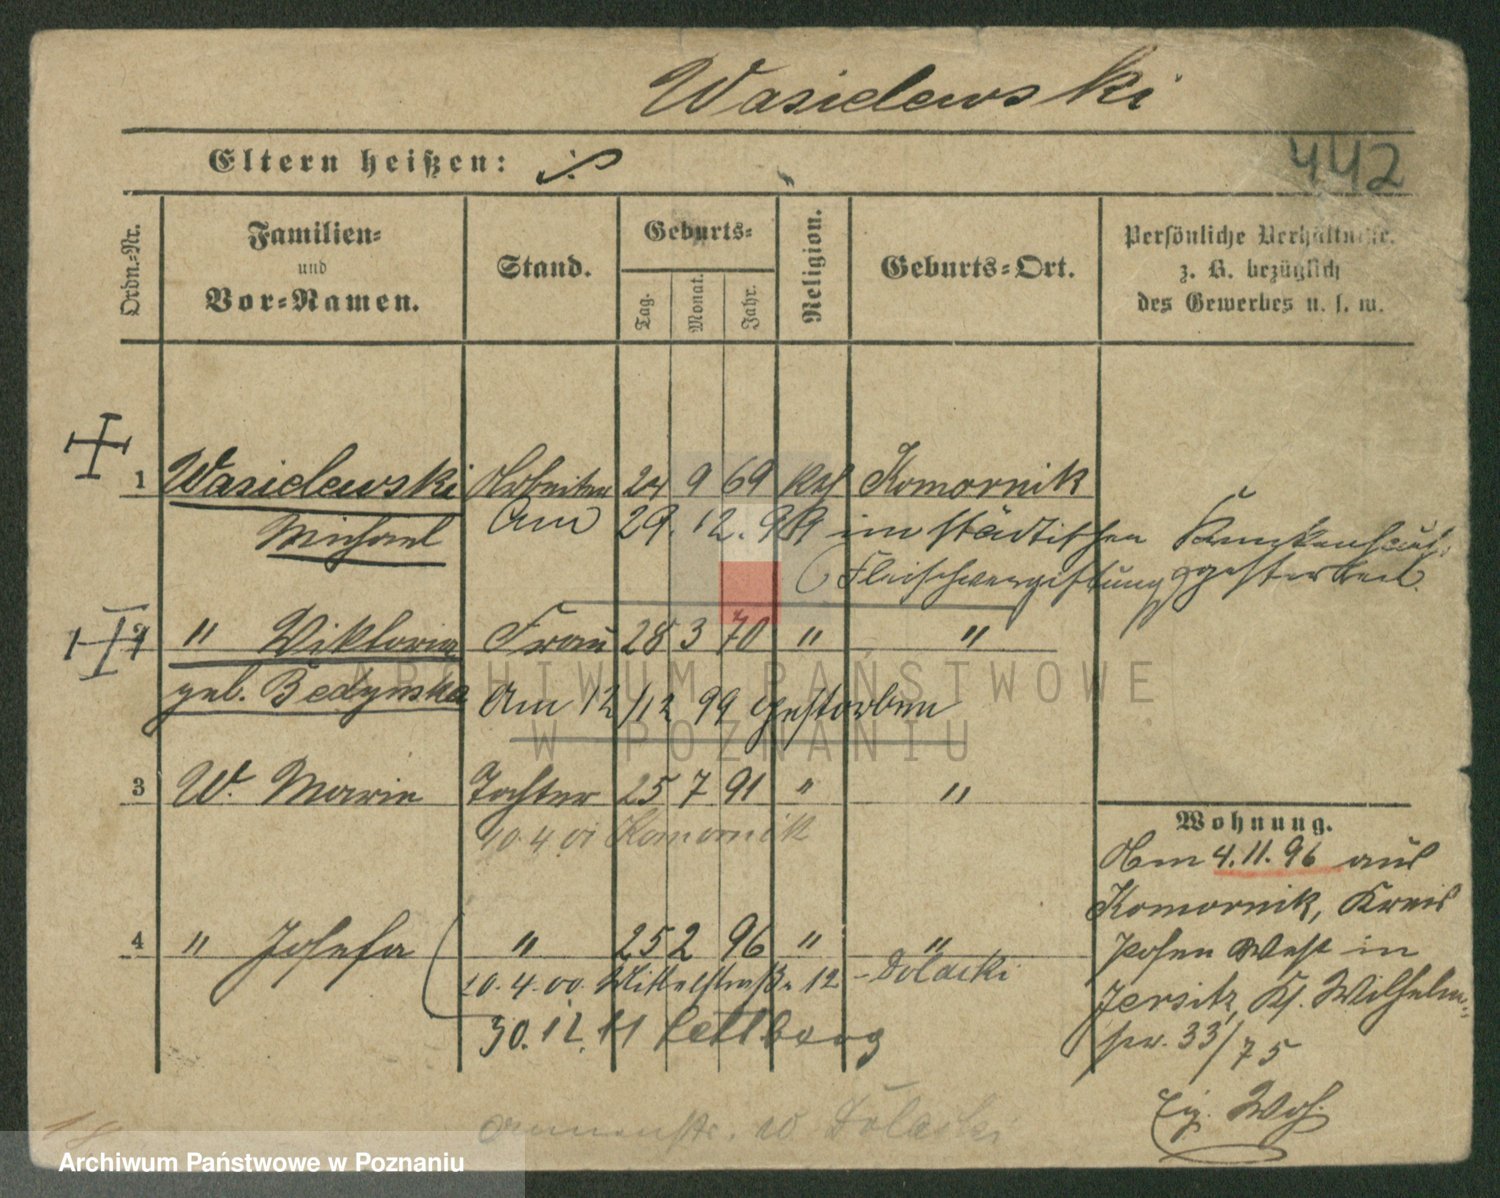 Wasielewski
Eltern heißen:
442
Ordn.-Nr.
Familien-
und
Vor-Namen.
Stand.
Geburts-
Tag.
Monat.
Jahr.
Religion.
Geburts-Ort.
Persönliche Verhältnisse.
z. B. bezüglich
des Gewerbes u. s. w.
1 Wasielewski Arbeiter 24 9 69 kth Komornik
Michael Am 29. 12. 99 im städtischen Krankenhause
(Fleischvergiftung gestorben.
" Wiktoria Frau 28 3 70 " "
geb. Bedynska Am 12/12 99 gestorben
ARCHIWUM PAŃSTWOWE
W POZNANIU
3 W. Marie Tochter 25 7 91 " "
10.4.01 Komornik
4 " Josefa " 25 2 96 " "
20.4.00. Mittelstraße 12 - Dolacki
30.12.11
w Dolacki
Wohnung.
Am 4.11.96 aus
Komornik, Kreis
Posen West in
Jersitz, Ks. Wilhelm-
str. 33/75
Eig. Woh.
18
Archiwum Państwowe w Poznaniu